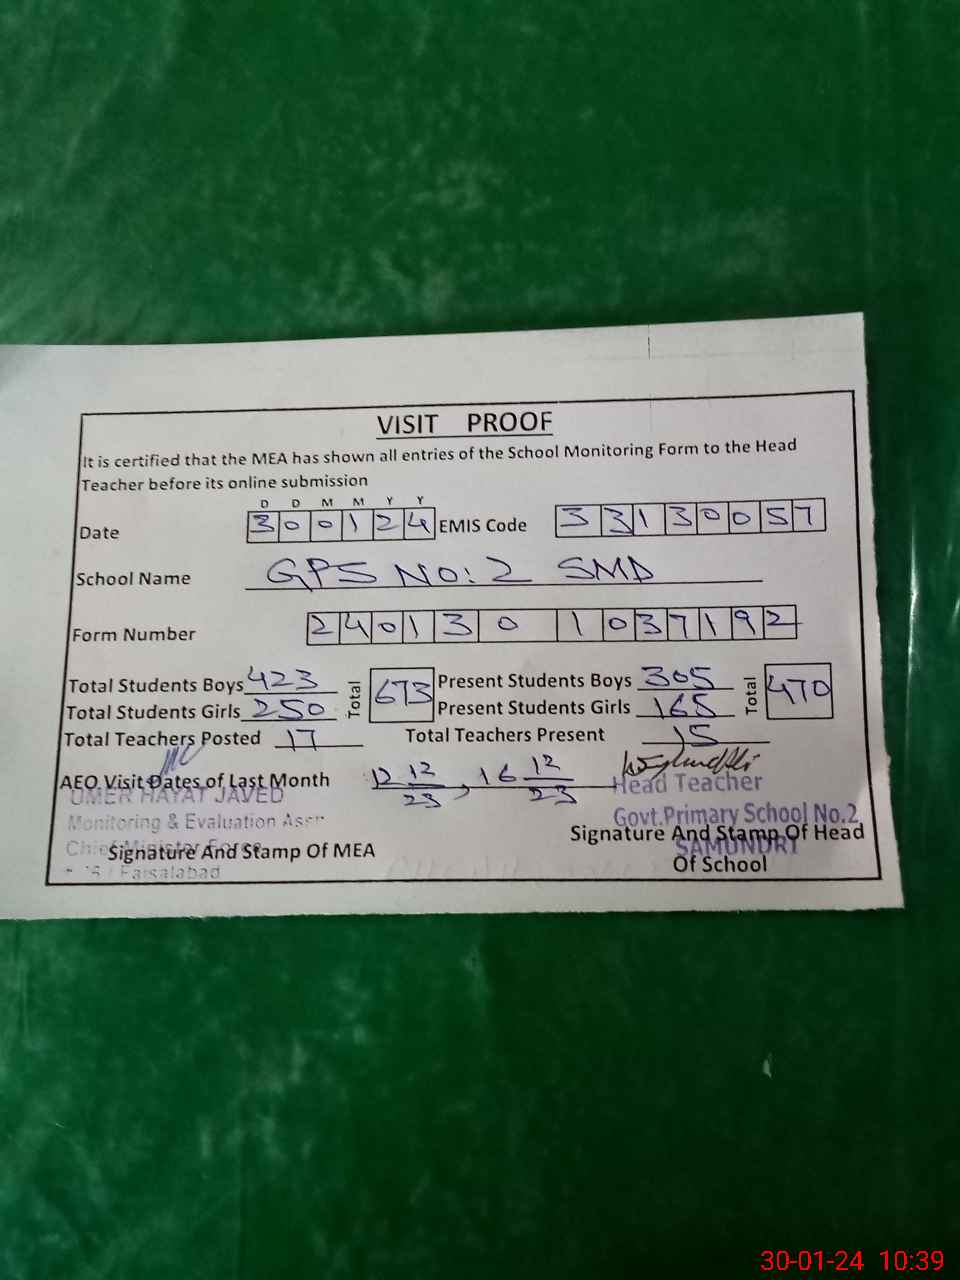 VISIT PROOF
It is certified that the MEA has shown all entries of the School Monitoring Form to the Head
Teacher before its online submission
D D M M Y Y
Date 300124 EMIS Code 33130057
School Name GPS NO: 2 SMD
Form Number 240130 1037192
Total Students Boys 423 Total 673 Present Students Boys 305 Total 470
Total Students Girls 250 Present Students Girls 165
Total Teachers Posted 17 Total Teachers Present 15
AEO Visit Dates of Last Month 12 12/23, 16 12/23
UMER HAYAT JAVED
Monitoring & Evaluation Assr
Chief Minister Force
Faisalabad
Signature And Stamp Of MEA
Head Teacher
Govt.Primary School No.2
SAMUNDRI
Signature And Stamp Of Head
Of School
30-01-24 10:39